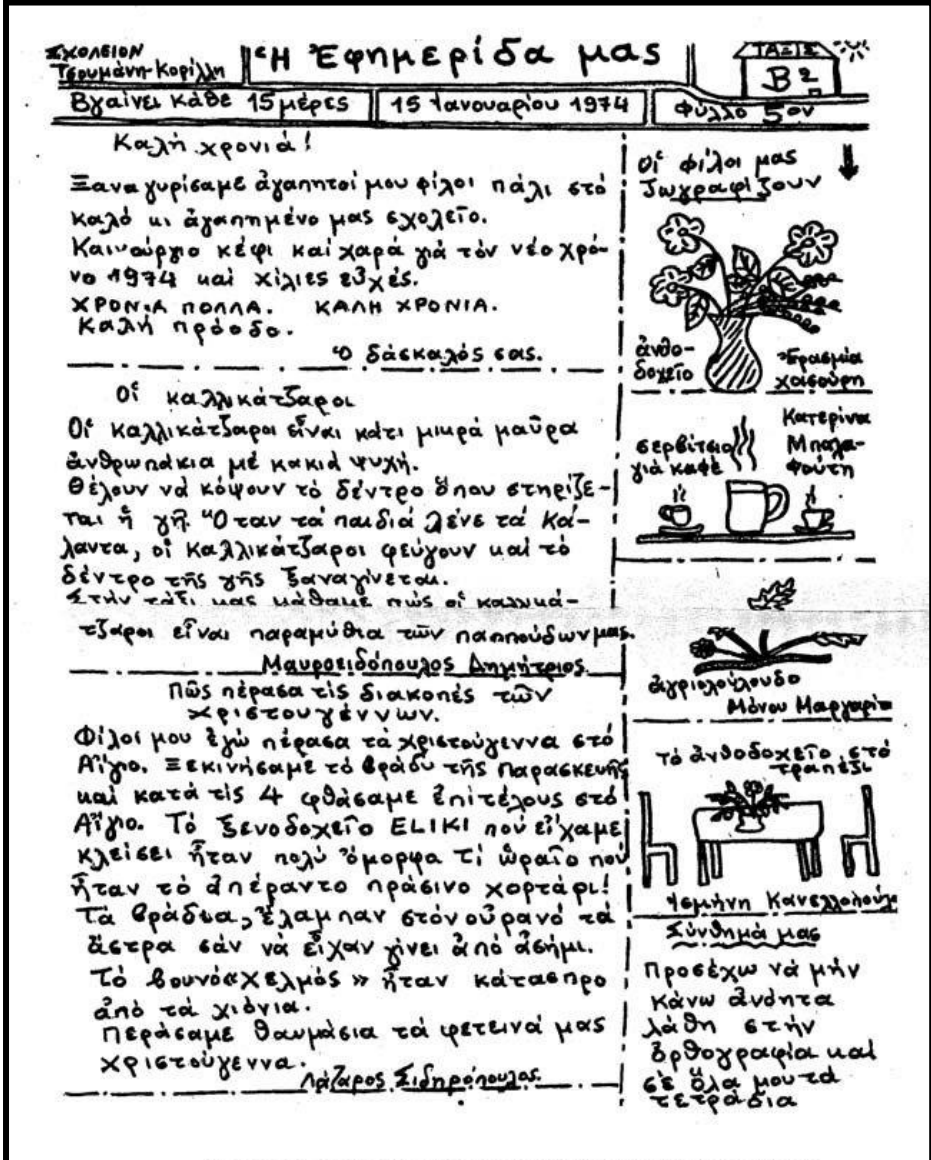 ΣΧΟΛΕΙΟΝ
Τσουμάνη-Κορίλλη
Ἡ Ἐφημερίδα μας
ΤΑΞΙΣ
Β2
Βγαίνει κάθε 15 μέρες
15 Ιανουαρίου 1974
Φύλλο 5ον
Καλή χρονιά!
Ξαναγυρίσαμε ἀγαπητοί μου φίλοι πάλι στό
καλό κι ἀγαπημένο μας σχολεῖο.
Καινούργιο κέφι καί χαρά γιά τόν νέο χρό-
νο 1974 καί χίλιες εὐχές.
ΧΡΟΝΙΑ ΠΟΛΛΑ. ΚΑΛΗ ΧΡΟΝΙΑ.
Καλή πρόοδο.
Ὁ δάσκαλός σας.
Οἱ καλλικάτζαροι
Οἱ καλλικάτζαροι εἶναι κάτι μικρά μαῦρα
ἀνθρωπάκια μέ κακιά ψυχή.
Θέλουν νά κόψουν τό δέντρο ὅπου στηρίζε-
ται ἡ γῆ. Ὅταν τά παιδιά λένε τά Κά-
λαντα, οἱ καλλικάτζαροι φεύγουν καί τό
δέντρο τῆς γῆς ξαναγίνεται.
Στήν τάξι μας μάθαμε πώς οἱ καλικά-
τζαροι εἶναι παραμύθια τῶν παππούδων μας.
Μαυροειδόπουλος Δημήτριος.
Πῶς πέρασα τίς διακοπές τῶν
χριστουγέννων.
Φίλοι μου ἐγώ πέρασα τά χριστούγεννα στό
Αἴγιο. Ξεκινήσαμε τό βράδυ τῆς Παρασκευῆς
καί κατά τίς 4 φθάσαμε ἐπιτέλους στό
Αἴγιο. Τό ξενοδοχεῖο ELIKI πού εἴχαμε
κλείσει ἦταν πολύ ὄμορφα τί ὡραῖο πού
ἦταν τό ἀπέραντο πράσινο χορτάρι!
Τά βράδυα, ἔλαμπαν στόν οὐρανό τά
ἄστρα σάν νά εἶχαν γίνει ἀπό ἀσήμι.
Τό βουνό «Χελμός» ἦταν κάτασπρο
ἀπό τά χιόνια.
Περάσαμε θαυμάσια τά φετεινά μας
χριστούγεννα.
Λάζαρος Σιδηρόπουλος.
Οἱ φίλοι μας
Ζωγραφίζουν
ἀνθο-
δοχεῖο
Ἐρασμία
Χαισούρη
σερβίτσιο
γιά καφέ
Κατερίνα
Μπαλα-
φούτη
ἀγριολούλουδο
Μόνου Μαργαρίτα
τό ἀνθοδοχεῖο στό
τραπέζι
Ισμήνη Κανελλοπούλου
Σύνθημά μας
Προσέχω νά μήν
κάνω ἀνόητα
λάθη στήν
ὀρθογραφία καί
σέ ὅλα μου τά
τετράδια